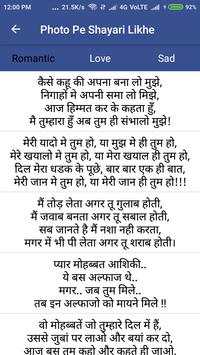 12:00 PM 21.5K/s 4G VoLTE
Photo Pe Shayari Likhe
Romantic Love Sad
कैसे कहू की अपना बना लो मुझे,
निगाहों मे अपनी समा लो मुझे,
आज हिम्मत कर के कहता हुँ,
मै तुम्हारा हुँ अब तुम ही संभालो मुझे!
मेरी यादो मे तुम हो, या मुझ मे ही तुम हो,
मेरे खयालो मे तुम हो, या मेरा खयाल ही तुम हो,
दिल मेरा धडक के पूछे, बार बार एक ही बात,
मेरी जान मे तुम हो, या मेरी जान ही तुम हो!!!
मैं तोड़ लेता अगर तू गुलाब होती,
मैं जवाब बनता अगर तू सबाल होती,
सब जानते है मैं नशा नही करता,
मगर में भी पी लेता अगर तू शराब होती।
प्यार मोहब्बत आशिकी..
ये बस अल्फाज थे..
मगर.. जब तुम मिले..
तब इन अल्फाजो को मायने मिले !!
वो मोहब्बतें जो तुम्हारे दिल में हैं,
उससे जुबां पर लाओ और बयां कर दो,
आज बस तुम कहो और कहते ही जाओ,